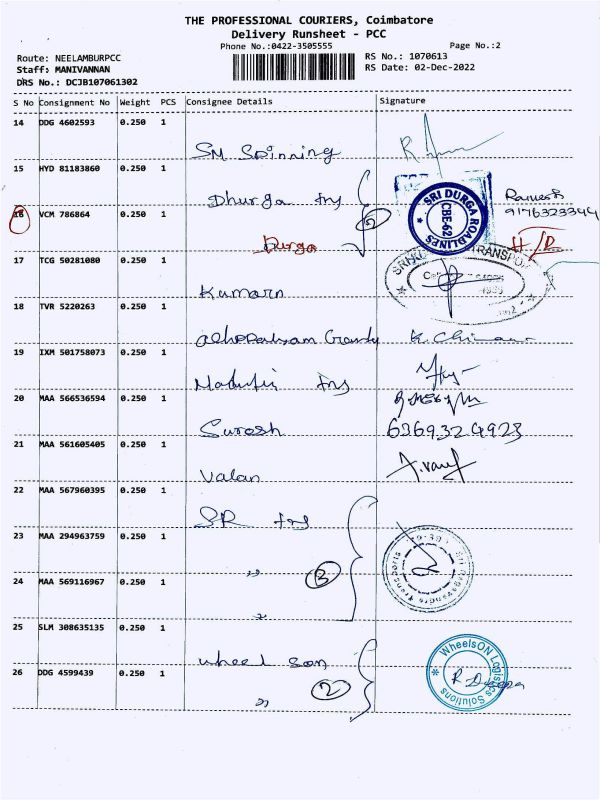 THE PROFESSIONAL COURIERS, Coimbatore
Delivery Runsheet - PCC
Phone No.:0422-3505555 Page No.:2
Route: NEELAMBURPCC RS No.: 1070613
Staff: MANIVANNAN RS Date: 02-Dec-2022
DRS No.: DCJB107061302
S No Consignment No Weight PCS Consignee Details Signature
14 DDG 4602593 0.250 1
SM Spinning
15 HYD 81183860 0.250 1
Dhurga
SRI DURGA ROADLINES
CBE-62
Ramesh
9176323344
16 VCM 786864 0.250 1
Durga 2
17 TCG 50281080 0.250 1
Kumarn
18 TVR 5220263 0.250 1
19 IXM 501758073 0.250 1
20 MAA 566536594 0.250 1
Suresh 6369324923
21 MAA 561605405 0.250 1
Valan
22 MAA 567960395 0.250 1
SR
23 MAA 294963759 0.250 1
" 3
24 MAA 569116967 0.250 1
"
25 SLM 308635135 0.250 1
wheel son
WheelsON Logistics Solutions
26 DDG 4599439 0.250 1
" 2